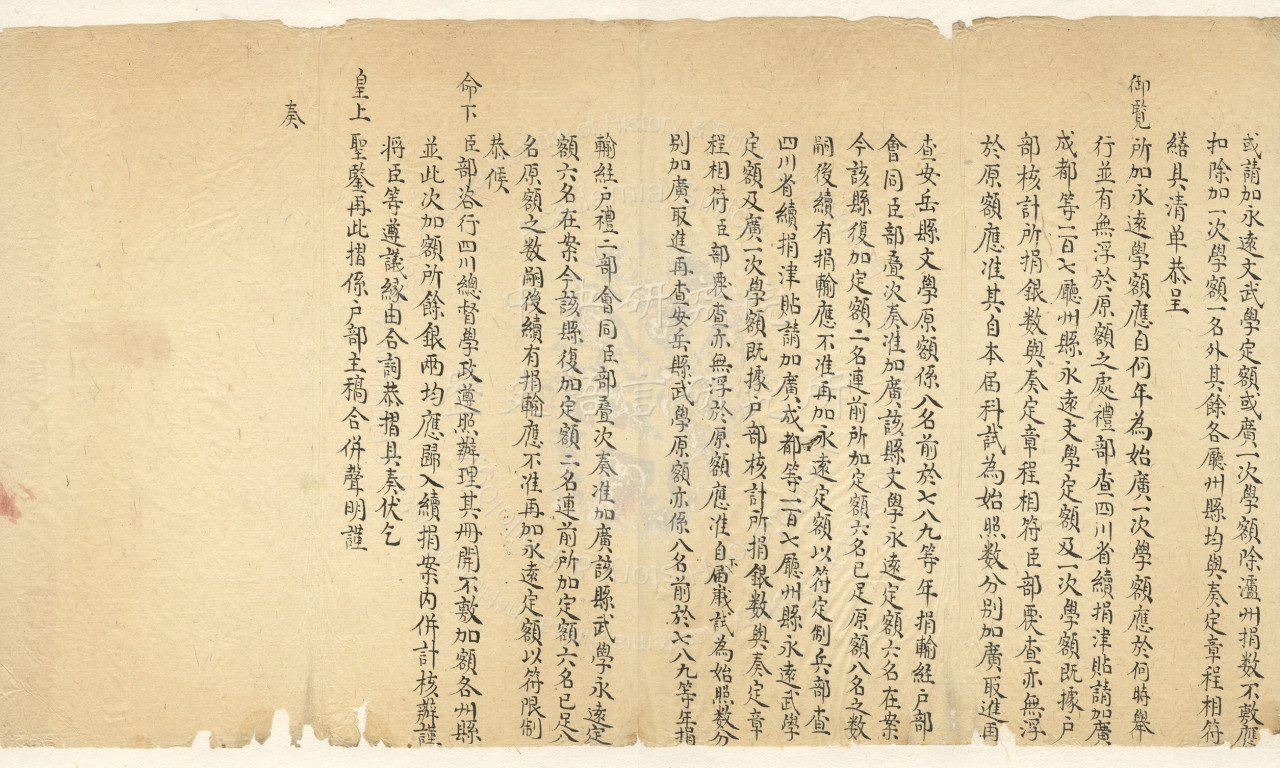 或請加永遠文武學定額或廣一次學額除瀘州捐數不敷應
扣除加一次學額一名外其餘各廳州縣均與奏定章程相符
繕具清单恭呈
御覽所加永遠學額應自何年為始廣一次學額應於何時舉
行並有無浮於原額之處禮部查四川省續捐津貼請加廣
成都等一百七廳州縣永遠文學定額及一次學額既據户
部核計所捐銀数與奏定章程相符臣部覆查亦無浮
於原額應准其自本届科試為始照数分别加廣取進再
查安岳縣文學原額係八名前於七八九等年捐輸經户部
會同臣部疊次奏准加廣該縣文學永遠定額六名在案
今該縣復加定額二名連前所加定額六名已足原額八名之数
嗣後續有捐輸應不准再加永遠定額以符定制兵部查
四川省續捐津貼請加廣成都等一百七廳州縣永遠武學
定額及廣一次學額既據户部核計所捐銀数與奏定章
程相符臣部覆查亦無浮於原額應准自下届歲試為始照数分
别加廣取進再查安岳縣武學原額亦係八名前於七八九等年捐
輸經户禮二部會同臣部疊次奏准加廣該縣武學永遠定
額六名在案今該縣復加定額二名連前所加定額六名已足八
名原額之数嗣後續有捐輸應不准再加永遠定額以符限制
恭候
命下臣部咨行四川總督學政遵照辦理其册開不敷加額各州縣
並此次加額所餘銀兩均應歸入續捐案內併計核辦謹
將臣等遵議緣由合詞恭摺具奏伏乞
皇上聖鑒再此摺係户部主稿合併聲明謹
奏